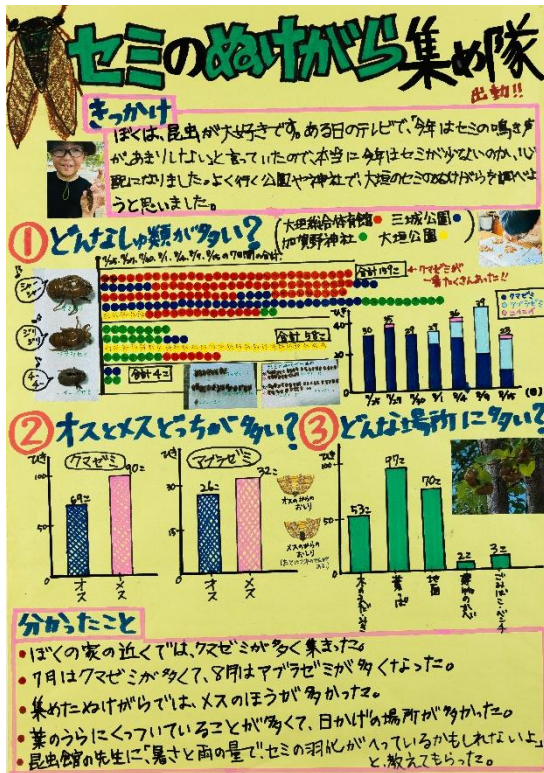 セミのぬけがら集め隊
出動!!
きっかけ
ぼくは、昆虫が大好きです。ある日のテレビで、「今年はセミの鳴き声
があまりしない」と言っていたので、本当に今年はセミが少ないのか、心
配になりました。よく行く公園や神社で、大垣のセミのぬけがらを調べよ
うと思いました。
① どんなしゅ類が多い?
大垣総合体育館 三城公園
加賀野神社 大垣公園
の7日間の合計
合計159こ
クマゼミが
一番たくさんあった!!
合計58こ
合計4こ
ひき
クマゼミ
アブラゼミ
40
20
0
30
35
29
39
23
7/25
7/27
7/30
8/1
8/4
8/9
8/15
(日)
② オスとメスどっちが多い?
クマゼミ
ひき
100
50
0
69こ
90こ
オス
メス
アブラゼミ
ひき
0
26こ
32こ
オス
メス
オスのからの
おしり
メスのからの
おしり
③ どんな場所に多い?
ひき
100
50
0
53こ
97こ
70こ
2こ
3こ
葉っぱ
地面
分かったこと
・ぼくの家の近くでは、クマゼミが多く集まった。
・7月はクマゼミが多くて、8月はアブラゼミが多くなった。
・集めたぬけがらでは、メスのほうが多かった。
・葉のうらにくっついていることが多くて、日かげの場所が多かった。
・昆虫館の先生に、「暑さと雨の量で、セミの羽化がへっているかもしれないよ」
と、教えてもらった。